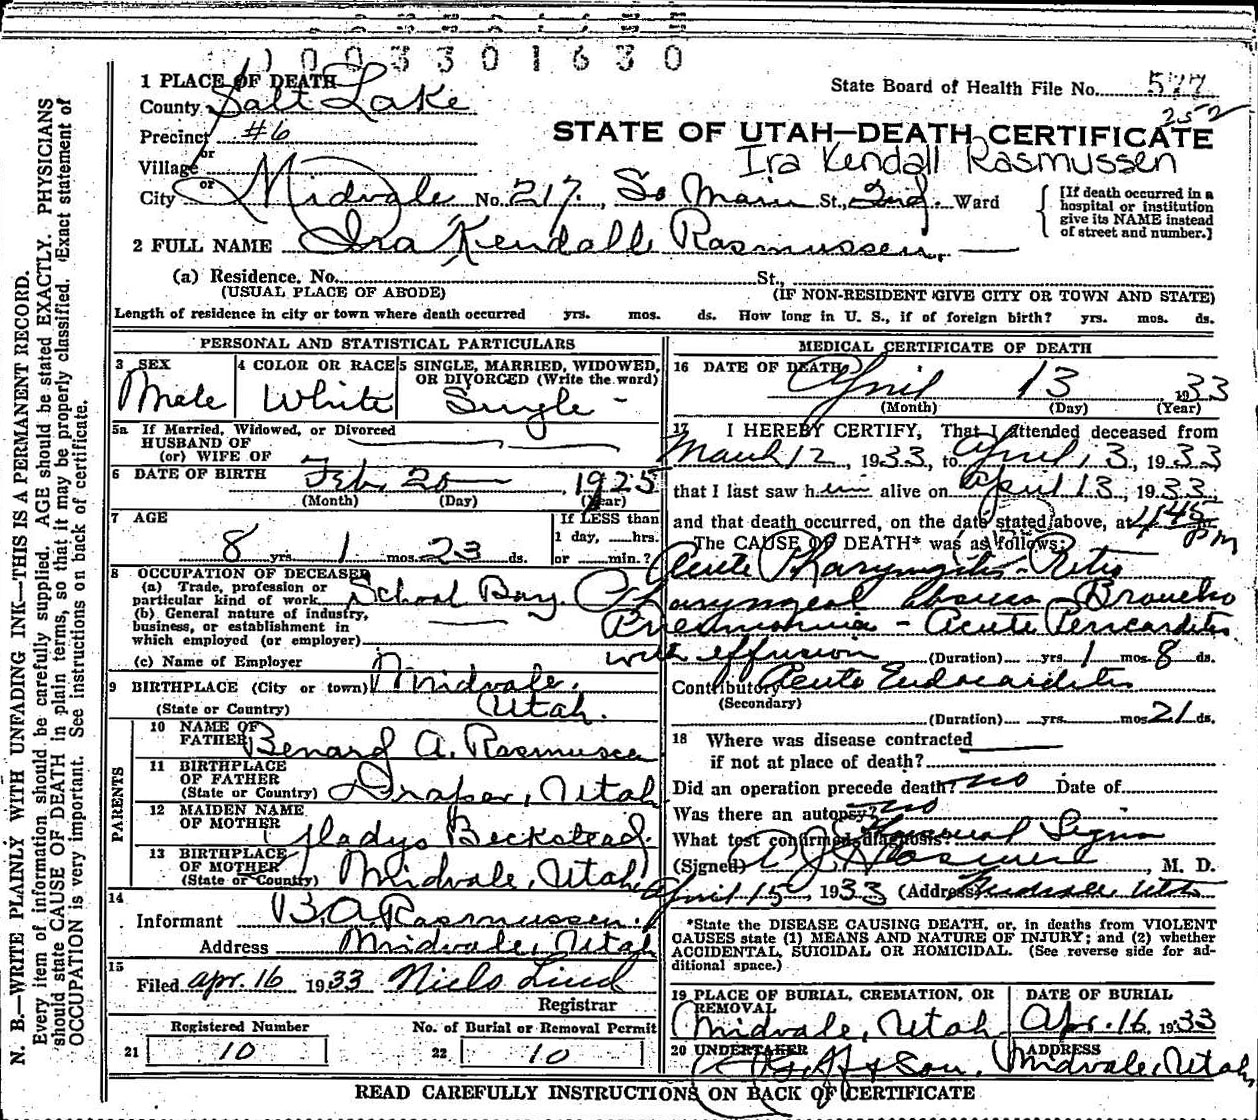 0 0 3 3 0 1 6 3 0
1 PLACE OF DEATH
State Board of Health File No. 577
County Salt Lake
252
Precinct #6
STATE OF UTAH—DEATH CERTIFICATE
or
Village
Ira Kendall Rasmussen
or
City Midvale No. 217. So Main St., 2nd. Ward
[If death occurred in a hospital or institution give its NAME instead of street and number.]
2 FULL NAME Ira Kendall Rasmussen.
(a) Residence, No. St.,
(USUAL PLACE OF ABODE) (IF NON-RESIDENT GIVE CITY OR TOWN AND STATE)
Length of residence in city or town where death occurred yrs. mos. ds. How long in U. S., if of foreign birth? yrs. mos. ds.
PERSONAL AND STATISTICAL PARTICULARS
3 SEX Male
4 COLOR OR RACE White
5 SINGLE, MARRIED, WIDOWED, OR DIVORCED (Write the word) Single
5a If Married, Widowed, or Divorced
HUSBAND OF
(or) WIFE OF
6 DATE OF BIRTH Feb. 20 1925
(Month) (Day) (Year)
7 AGE
8 yrs. 1 mos. 23 ds.
If LESS than
1 day, hrs.
or min.?
8 OCCUPATION OF DECEASED
(a) Trade, profession or
particular kind of work School Boy.
(b) General nature of industry,
business, or establishment in
which employed (or employer)
(c) Name of Employer
9 BIRTHPLACE (City or town) Midvale.
(State or Country) Utah.
PARENTS
10 NAME OF
FATHER Benard A. Rasmussen
11 BIRTHPLACE
OF FATHER
(State or Country) Draper, Utah
12 MAIDEN NAME
OF MOTHER Gladys Beckstead.
13 BIRTHPLACE
OF MOTHER
(State or Country) Midvale, Utah
14
Informant B.A. Rasmussen.
Address Midvale, Utah
15
Filed Apr. 16 1933 Niels Lind
Registrar
Registered Number No. of Burial or Removal Permit
21 10 22 10
MEDICAL CERTIFICATE OF DEATH
16 DATE OF DEATH April 13 1933
(Month) (Day) (Year)
17 I HEREBY CERTIFY, That I attended deceased from
March 12, 1933, to April 13, 1933
that I last saw him alive on April 13, 1933,
and that death occurred, on the date stated above, at 4:45 pm
The CAUSE OF DEATH* was as follows:
Acute Pharyngitis - Retro
Pharyngeal Abscess - Broncho
Pneumonia - Acute Pericarditis
with effusion (Duration) yrs. 1 mos. 8 ds.
Contributory Acute Endocarditis
(Secondary)
(Duration) yrs. mos. 21 ds.
18 Where was disease contracted
if not at place of death?
Did an operation precede death? no Date of
Was there an autopsy? no
What test confirmed diagnosis? Signs
(Signed) , M. D.
April 15 1933 (Address) Midvale, Utah
*State the DISEASE CAUSING DEATH, or, in deaths from VIOLENT
CAUSES state (1) MEANS AND NATURE OF INJURY; and (2) whether
ACCIDENTAL, SUICIDAL OR HOMICIDAL. (See reverse side for ad-
ditional space.)
19 PLACE OF BURIAL, CREMATION, OR
REMOVAL
Midvale, Utah
DATE OF BURIAL
Apr. 16, 1933
20 UNDERTAKER & Son.
ADDRESS
Midvale, Utah
READ CAREFULLY INSTRUCTIONS ON BACK OF CERTIFICATE
N. B.—WRITE PLAINLY WITH UNFADING INK—THIS IS A PERMANENT RECORD.
Every item of information should be carefully supplied. AGE should be stated EXACTLY. PHYSICIANS
should state CAUSE OF DEATH in plain terms, so that it may be properly classified. Exact statement of
OCCUPATION is very important. See instructions on back of certificate.